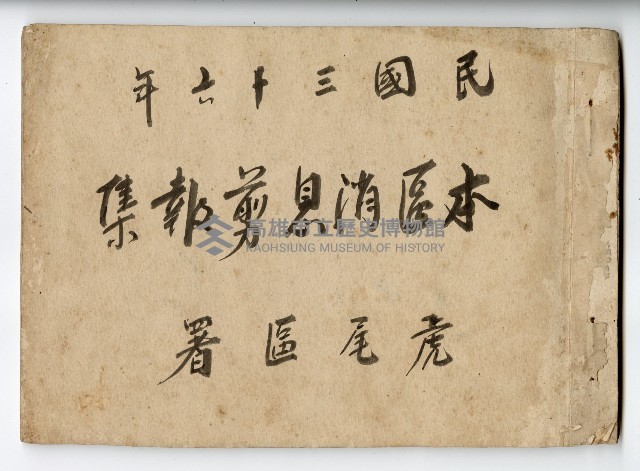 民國三十六年
本區消息剪報集
高雄市立歷史博物館
KAOHSIUNG MUSEUM OF HISTORY
虎尾區署